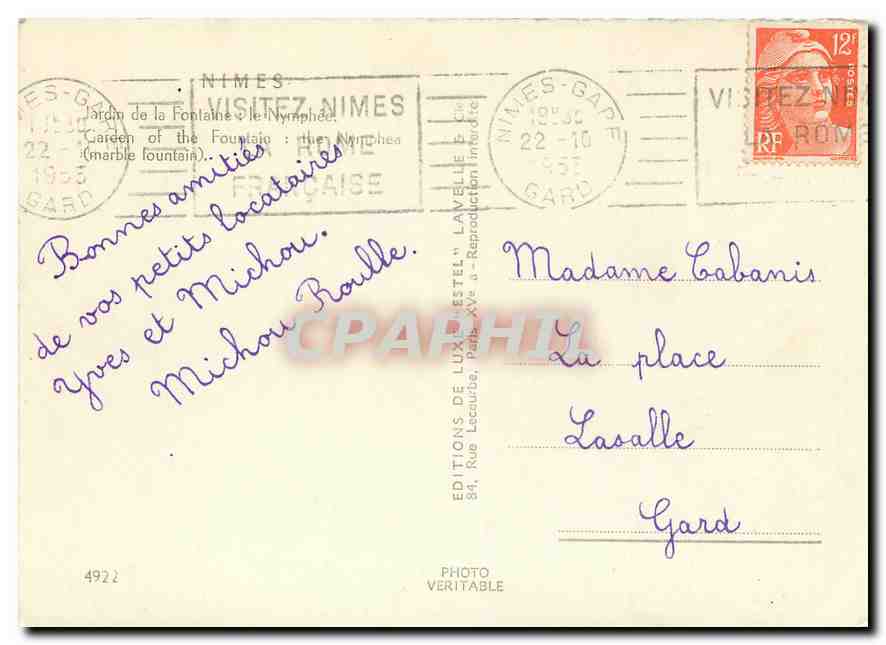 NIMES
Jardin de la Fontaine : le Nymphée.
Garden of the Fountain : the Nymphea
(marble fountain).
NIMES-GARE
22
1953
GARD
VISITEZ NIMES
LA ROME
FRANÇAISE
NIMES-GARE
22-10
GARD
VISITEZ NIM
LA ROME
12F
POSTES
RF
Bonnes amitiés
de vos petits locataires
Yves et Michou.
Michou Roulle.
EDITIONS DE LUXE "ESTEL" LAVELLE & Cie
84, Rue Lecourbe, Paris XVe - Reproduction interdite
Madame Cabanis
La place
Lasalle
Gard
CPAPHIL
4922
PHOTO
VERITABLE